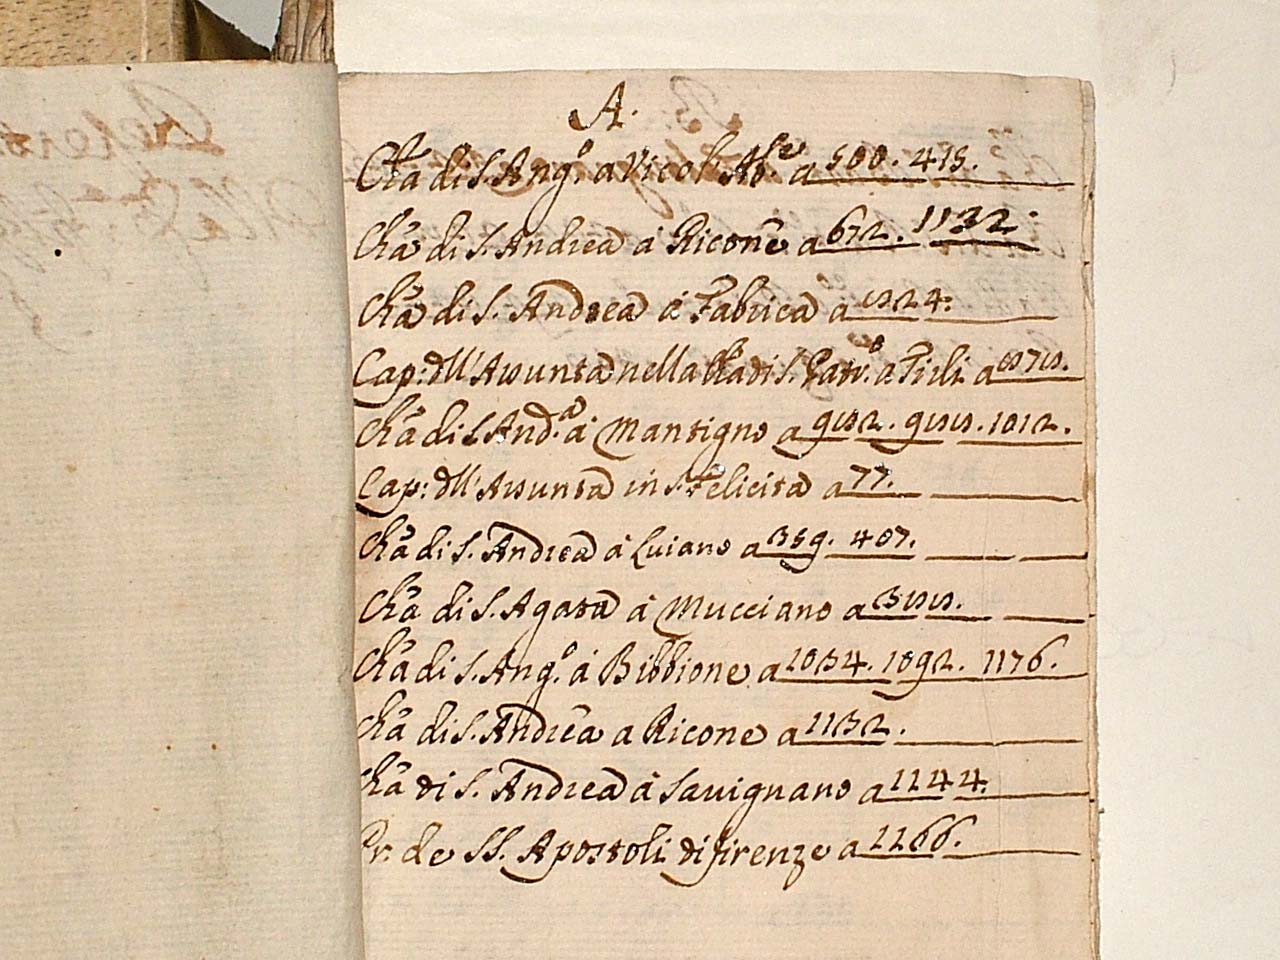 A.
Cħa di S. Ang.º a Vicol. Ab.te a 500. 415.
Cħa di S. Andrea à Ricone a 672. 1132.
Cħa di S. Andrea à Fabrica a 524.
Cap: dll' Assunta nella Cħa di S. a Firli a 575.
Cħa di S. And.a à Mantigno a 952. 955. 1012.
Cap: dll' Assunta in S. Felicita a 77.
Cħa di S. Andrea à Luiano a 359. 407.
Cħa di S. Agata à Mucciano a 355.
Cħa di S. Ang.º à Bibbione a 1034. 1092. 1176.
Cħa di S. Andrea a Ricone a 1132.
Cħa di S. Andrea à Savignano a 1144.
Pr. de SS. Apostoli di firenze a 1166.